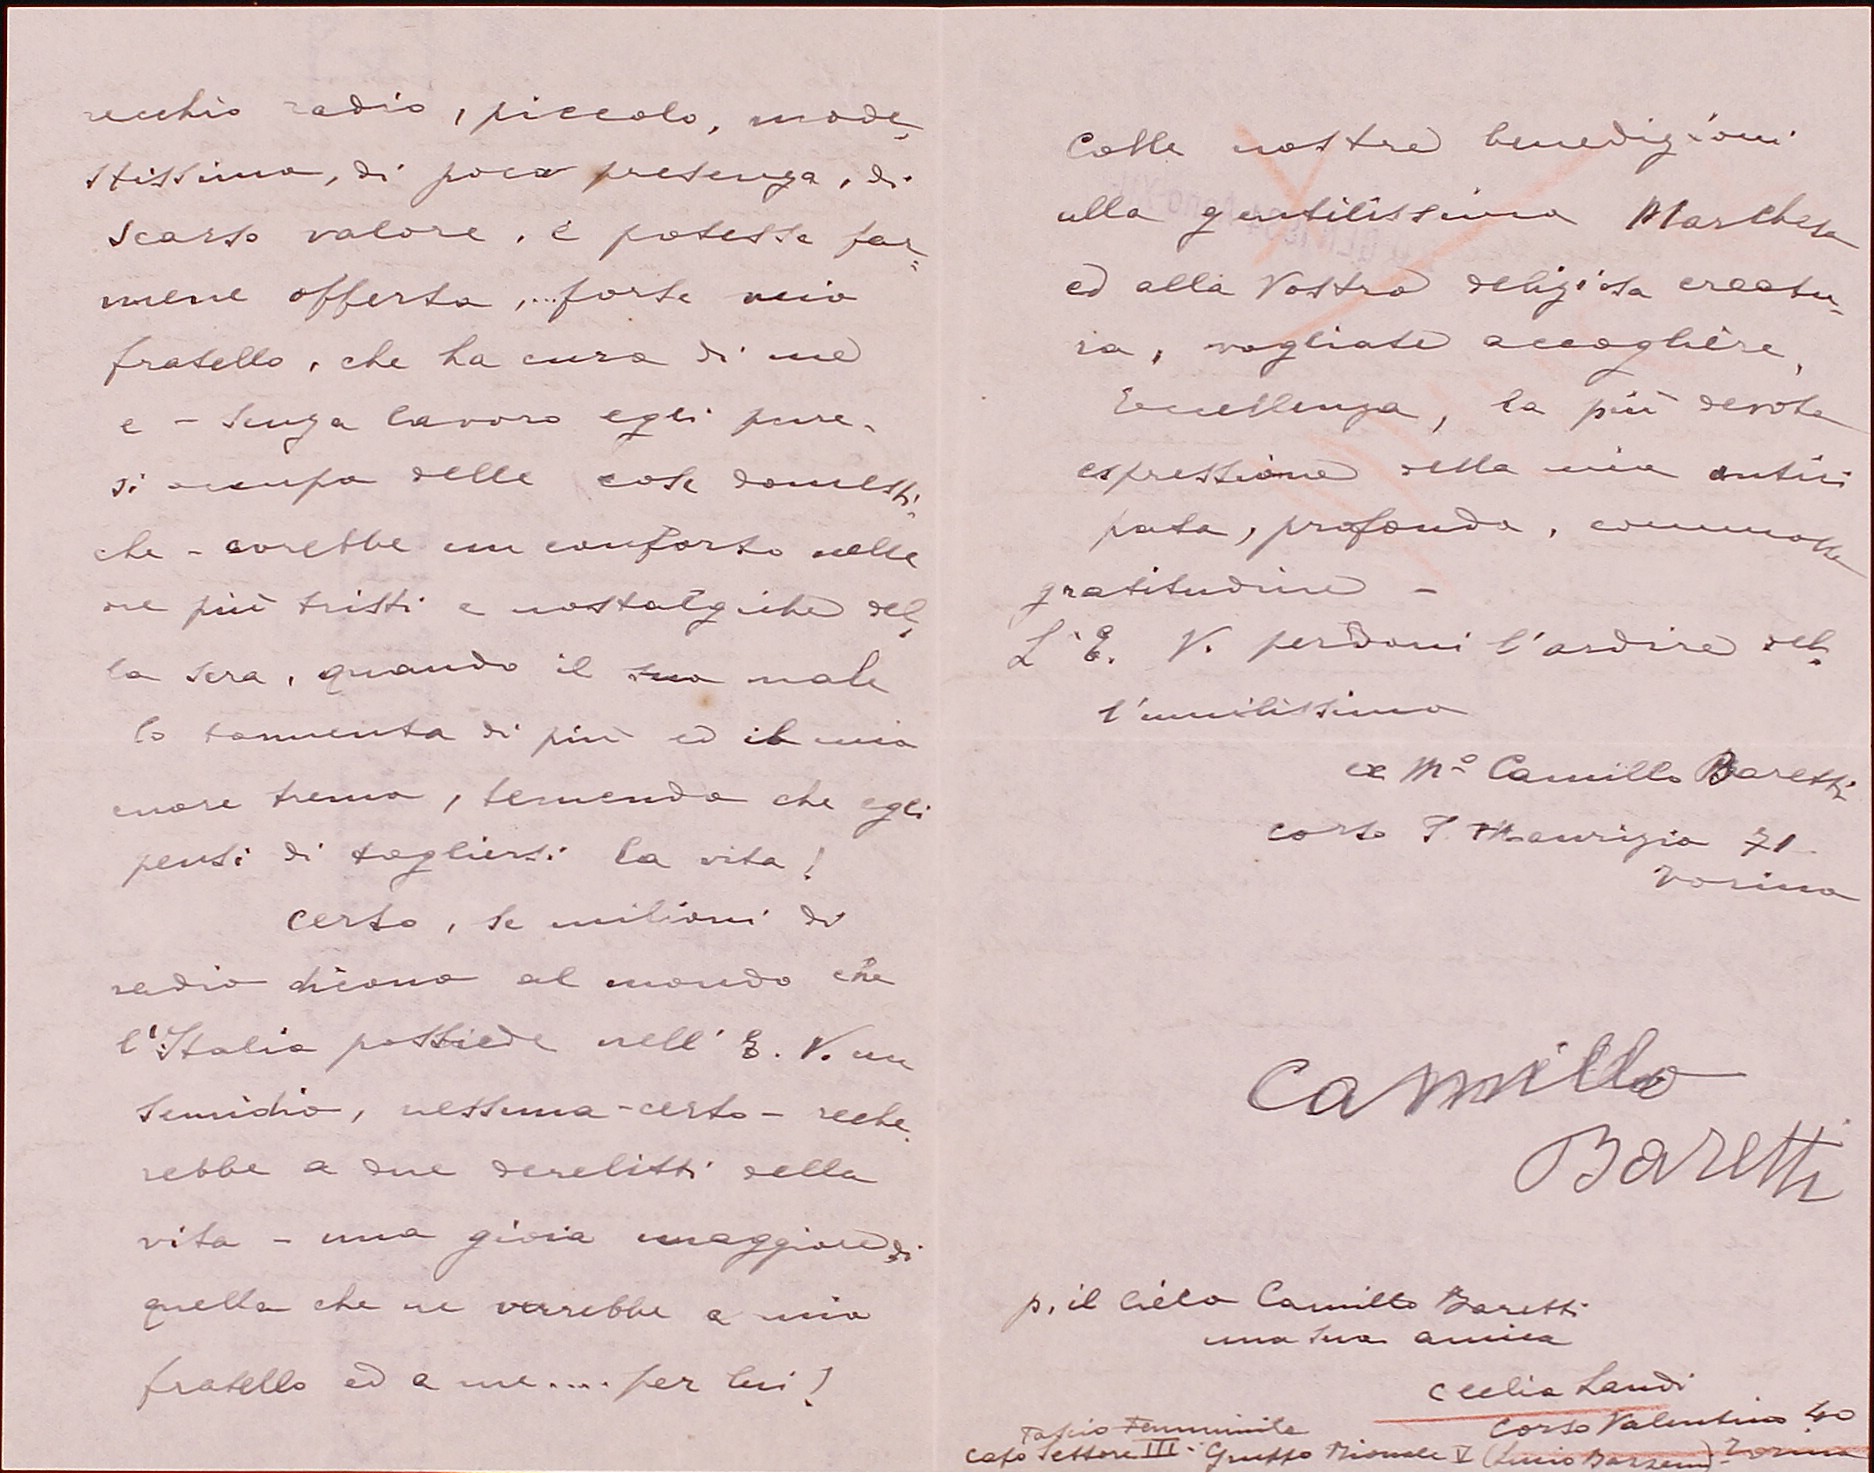 recchio radio, piccolo, mode=
stissimo, di poca presenza, di
scarso valore, e potesse far=
mene offerta,... forse mio
fratello, che ha cura di me
e - senza lavoro egli pure -
si occupa delle cose domesti=
che - avrebbe un conforto nelle
ore più tristi e nostalgiche del=
la sera, quando il suo male
lo tormenta di più ed il mio
cuore trema, temendo che egli
pensi di togliersi la vita!
Certo, se milioni di
radio dicono al mondo che
l'Italia possiede nell' E. V. un
semidio, nessuna - certo - reche=
rebbe a due derelitti della
vita - una gioia maggiore di
quella che ne verrebbe a mio
fratello ed a me.... per lui!
Colle nostre benedizioni
alla gentilissima Marchesa
ed alla Vostra deliziosa creatu=
ra, vogliate accogliere,
Eccellenza, la più devota
espressione della mia antici
pata, profonda, commossa
gratitudine -
L'E. V. perdoni l'ardire del=
l'umilissimo
ex M.o Camillo Baretti
corso S. Maurizio 71.
Torino
Camillo
Baretti
p. il cieco Camillo Baretti
una sua amica
Cecilia Landi
Corso Valentino 40
Fascio Femminile
Capo Settore III - Gruppo Rionale V (Lucio Bazzani) - Torino